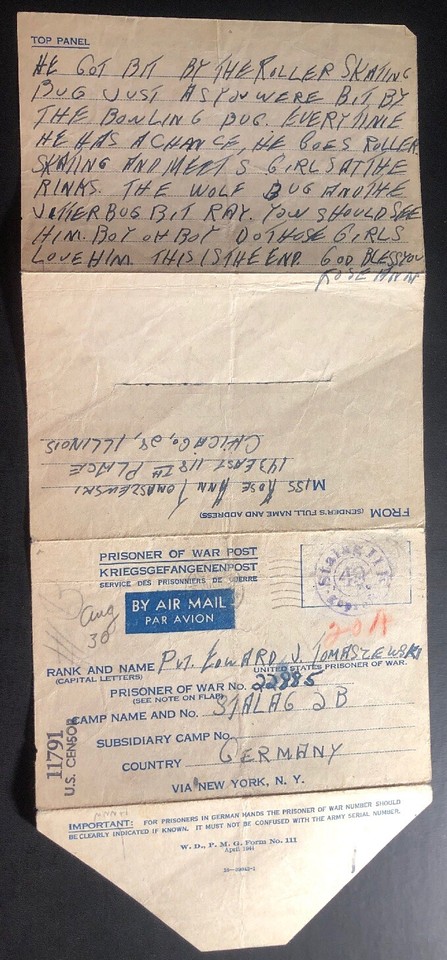 TOP PANEL
HE GOT BIT BY THE ROLLER SKATING
BUG JUST AS YOU WERE BIT BY
THE BOWLING BUG. EVERYTIME
HE HAS A CHANCE, HE GOES ROLLER
SKATING AND MEETS GIRLS AT THE
RINKS. THE WOLF BUG AND THE
JITTER BUG BIT RAY. YOU SHOULD SEE
HIM. BOY OH BOY DO THOSE GIRLS
LOVE HIM. THIS IS THE END. GOD BLESS YOU
ROSE ANN
FROM (SENDER'S FULL NAME AND ADDRESS)
MISS ROSE ANN TOMASZEWSKI
143 EAST 118TH PLACE
CHICAGO, 28, ILLINOIS
PRISONER OF WAR POST
KRIEGSGEFANGENENPOST
SERVICE DES PRISONNIERS DE GUERRE
BY AIR MAIL
PAR AVION
Stalag II B
Aug
30
20A
RANK AND NAME PVT. EDWARD J. TOMASZEWSKI
(CAPITAL LETTERS) UNITED STATES PRISONER OF WAR.
PRISONER OF WAR No. 22885
(SEE NOTE ON FLAP)
CAMP NAME AND No. STALAG 2B
SUBSIDIARY CAMP No.
COUNTRY GERMANY
VIA NEW YORK, N. Y.
11791
U.S. CENSOR
IMPORTANT: FOR PRISONERS IN GERMAN HANDS THE PRISONER OF WAR NUMBER SHOULD
BE CLEARLY INDICATED IF KNOWN. IT MUST NOT BE CONFUSED WITH THE ARMY SERIAL NUMBER.
W. D., P. M. G. Form No. 111
April 1944